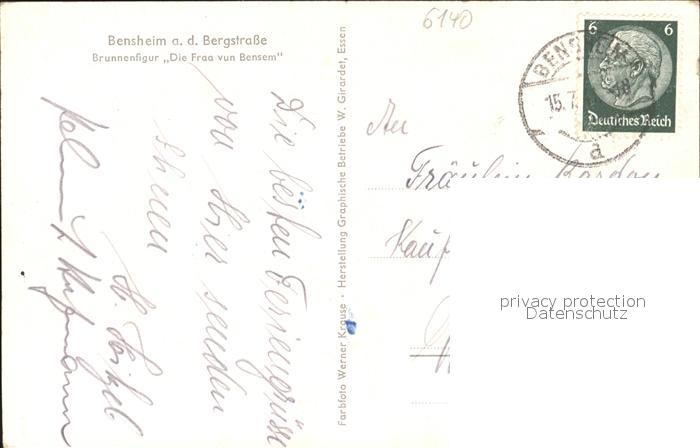 Bensheim a. d. Bergstraße
Brunnenfigur „Die Fraa vun Bensem"
6140
6 6
Deutsches Reich
BENSHEIM
15.7.
18
d
Farbfoto Werner Krause • Herstellung Graphische Betriebe W. Girardet, Essen
Die besten Feriengrüsse
von hier senden
Ihnen
H.
An
Fräulein
Kauf
privacy protection
Datenschutz